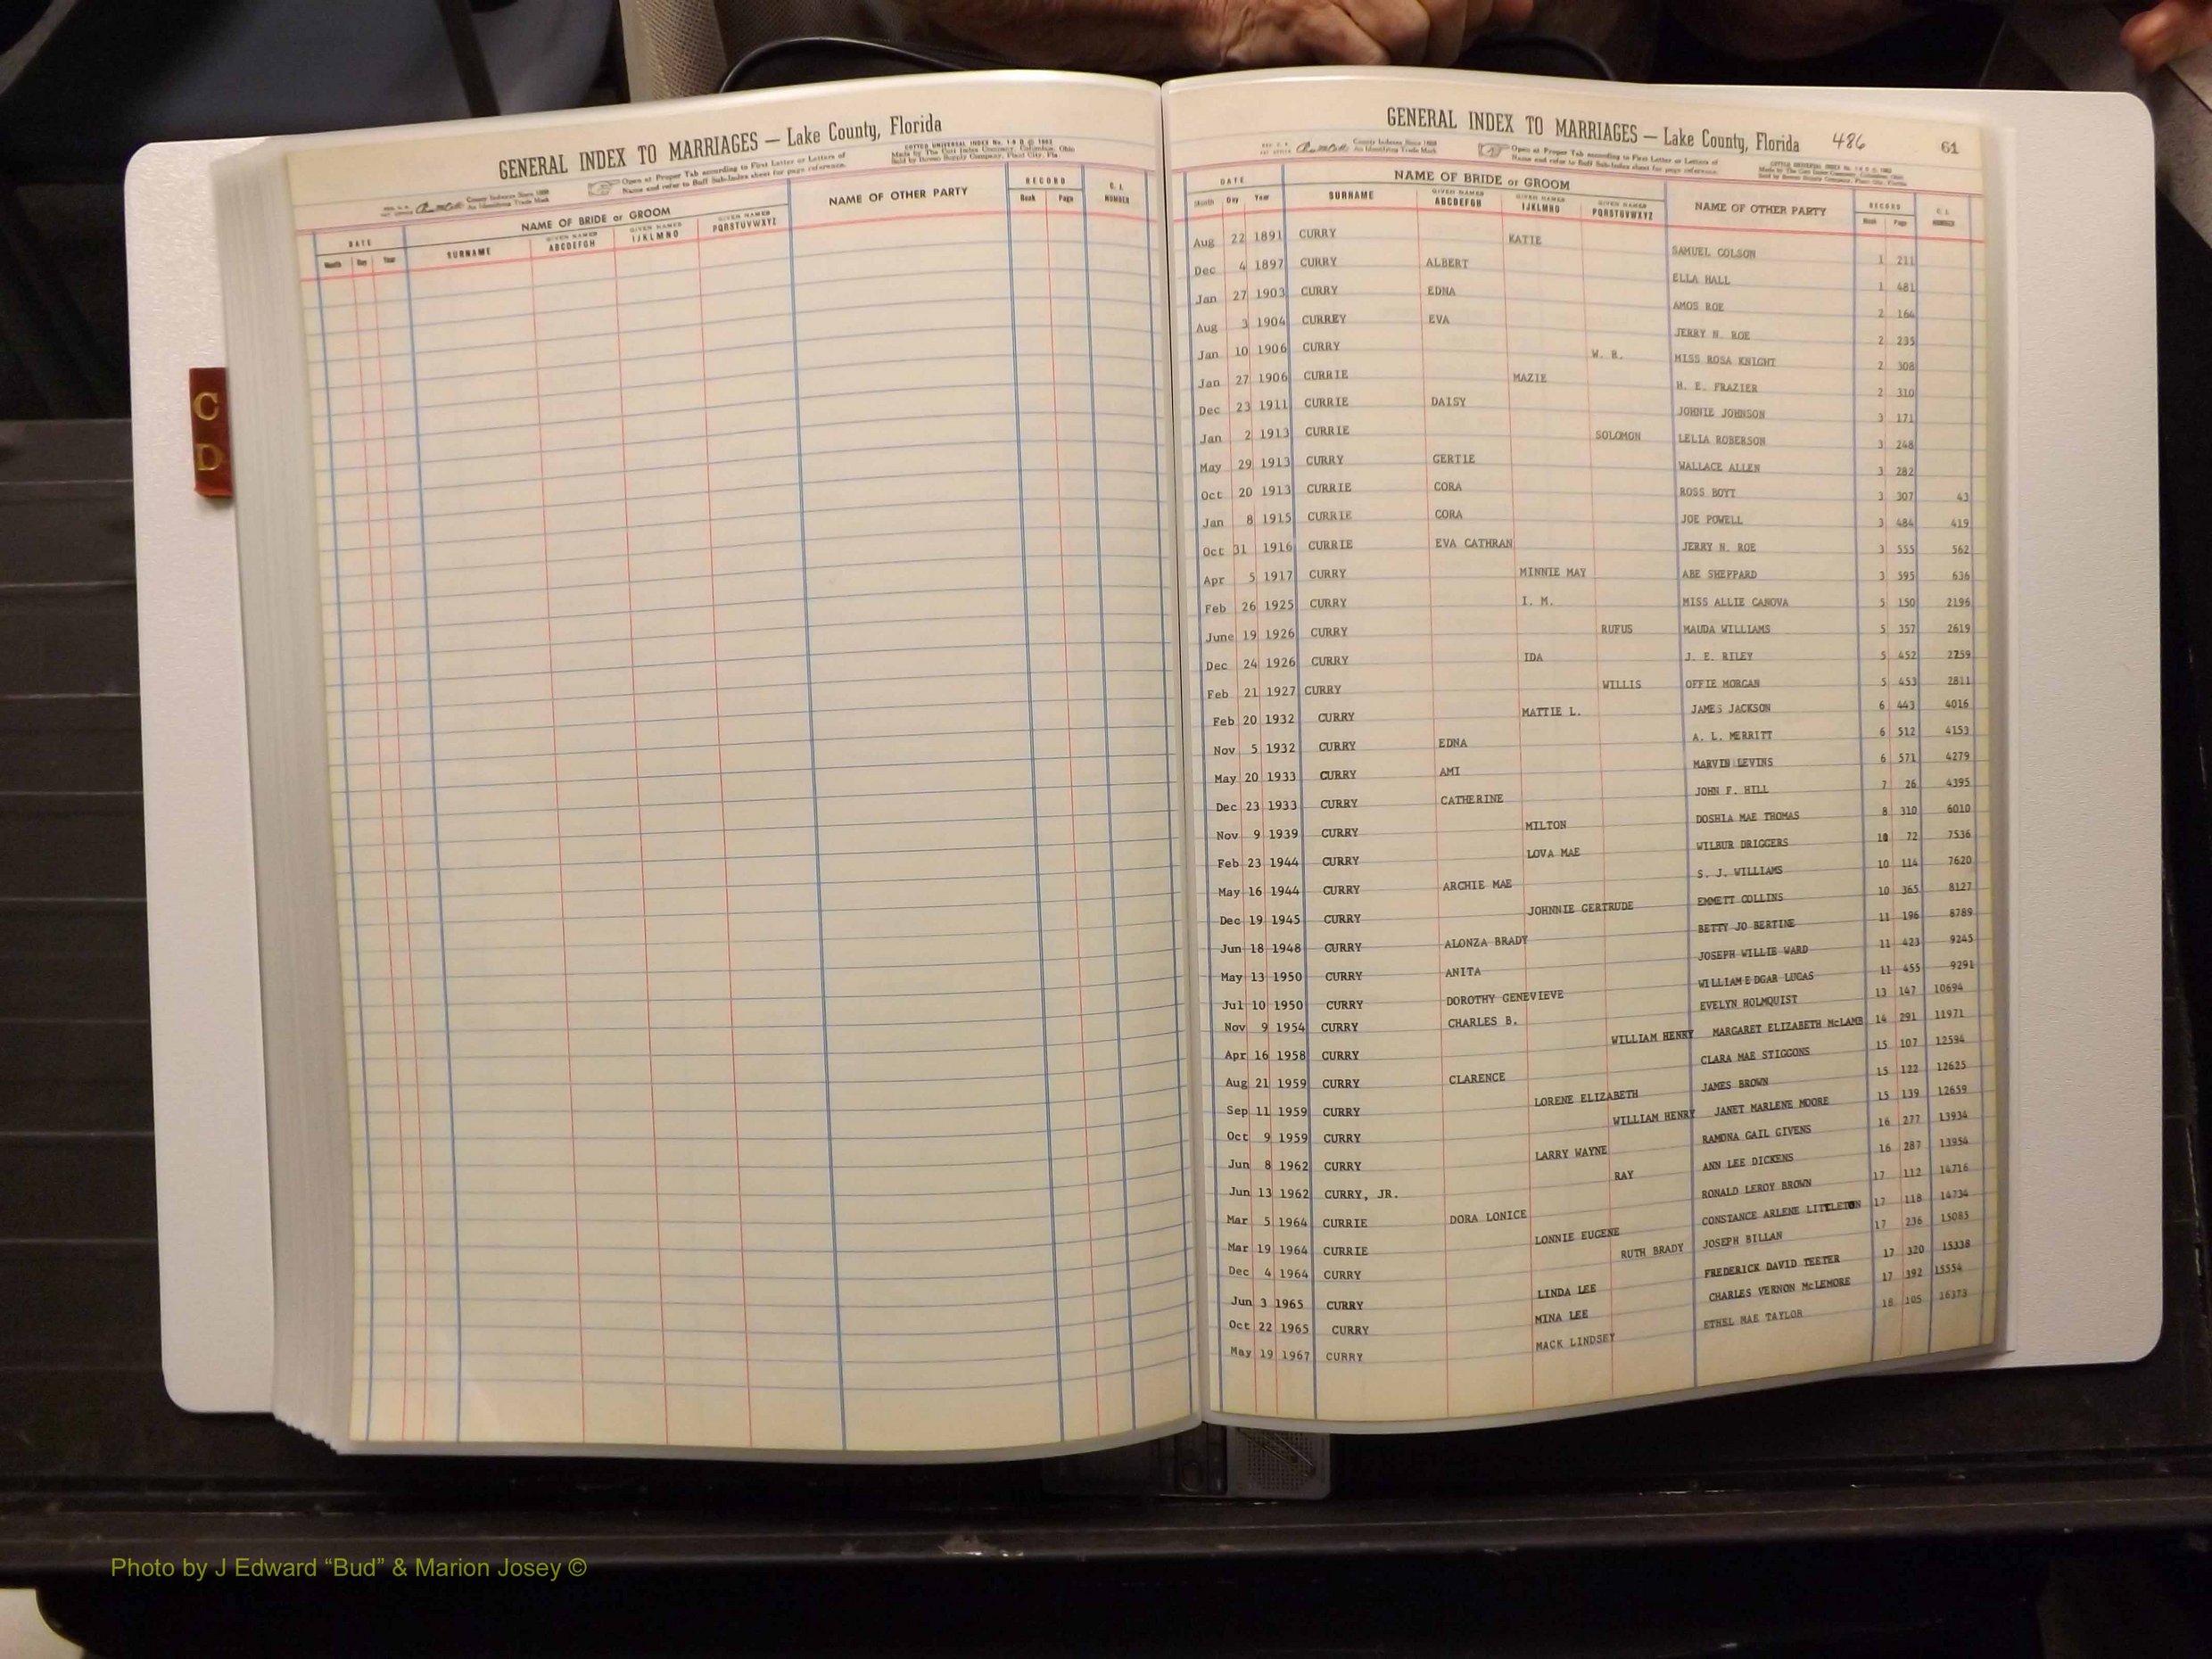 GENERAL INDEX TO MARRIAGES — Lake County, Florida
COTTED UNIVERSAL INDEX No.
Made by The Cott Index Company, Columbus, Ohio
Sold by Bowen Supply Company, Plant City, Fla.
County Indexes Since 1888
An Identifying Trade Mark
Open at Proper Tab according to First Letter or Letters of
Name and refer to Buff Sub-Index sheet for page reference.
DATE NAME OF BRIDE or GROOM NAME OF OTHER PARTY RECORD C. I. NUMBER
Month Day Year SURNAME GIVEN NAMES ABCDEFGH GIVEN NAMES IJKLMNO GIVEN NAMES PQRSTUVWXYZ Book Page
C
D
GENERAL INDEX TO MARRIAGES — Lake County, Florida 486 61
County Indexes Since 1888
An Identifying Trade Mark
Open at Proper Tab according to First Letter or Letters of
Name and refer to Buff Sub-Index sheet for page reference.
DATE NAME OF BRIDE or GROOM NAME OF OTHER PARTY RECORD C. I.
Month Day Year SURNAME GIVEN NAMES ABCDEFGH GIVEN NAMES IJKLMNO GIVEN NAMES PQRSTUVWXYZ Book Page NUMBER
Aug 22 1891 CURRY KATIE SAMUEL COLSON 1 211
Dec 4 1897 CURRY ALBERT ELLA HALL 1 481
Jan 27 1903 CURRY EDNA AMOS ROE 2 164
Aug 3 1904 CURREY EVA JERRY N. ROE 2 235
Jan 10 1906 CURRY W. R. MISS ROSA KNIGHT 2 308
Jan 27 1906 CURRIE MAZIE H. E. FRAZIER 2 310
Dec 23 1911 CURRIE DAISY JOHNIE JOHNSON 3 171
Jan 2 1913 CURRIE SOLOMON LELIA ROBERSON 3 248
May 29 1913 CURRY GERTIE WALLACE ALLEN 3 282
Oct 20 1913 CURRIE CORA ROSS BOYT 3 307 43
Jan 8 1915 CURRIE CORA JOE POWELL 3 484 419
Oct 31 1916 CURRIE EVA CATHRAN JERRY N. ROE 3 555 562
Apr 5 1917 CURRY MINNIE MAY ABE SHEPPARD 3 595 636
Feb 26 1925 CURRY I. M. MISS ALLIE CANOVA 5 150 2196
June 19 1926 CURRY RUFUS MAUDA WILLIAMS 5 357 2619
Dec 24 1926 CURRY IDA J. E. RILEY 5 452 2259
Feb 21 1927 CURRY WILLIS OFFIE MORGAN 5 453 2811
Feb 20 1932 CURRY MATTIE L. JAMES JACKSON 6 443 4016
Nov 5 1932 CURRY EDNA A. L. MERRITT 6 512 4153
May 20 1933 CURRY AMI MARVIN LEVINS 6 571 4279
Dec 23 1933 CURRY CATHERINE JOHN F. HILL 7 26 4395
Nov 9 1939 CURRY MILTON DOSHIA MAE THOMAS 8 310 6010
Feb 23 1944 CURRY LOVA MAE WILBUR DRIGGERS 10 72 7536
May 16 1944 CURRY ARCHIE MAE S. J. WILLIAMS 10 114 7620
Dec 19 1945 CURRY JOHNNIE GERTRUDE EMMETT COLLINS 10 365 8127
Jun 18 1948 CURRY ALONZA BRADY BETTY JO BERTINE 11 196 8789
May 13 1950 CURRY ANITA JOSEPH WILLIE WARD 11 423 9245
Jul 10 1950 CURRY DOROTHY GENEVIEVE WILLIAM EDGAR LUCAS 11 455 9291
Nov 9 1954 CURRY CHARLES B. EVELYN HOLMQUIST 13 147 10694
Apr 16 1958 CURRY WILLIAM HENRY MARGARET ELIZABETH McLAMB 14 291 11971
Aug 21 1959 CURRY CLARENCE CLARA MAE STIGGONS 15 107 12594
Sep 11 1959 CURRY LORENE ELIZABETH JAMES BROWN 15 122 12625
Oct 9 1959 CURRY WILLIAM HENRY JANET MARLENE MOORE 15 139 12659
Jun 8 1962 CURRY LARRY WAYNE RAMONA GAIL GIVENS 16 277 13934
Jun 13 1962 CURRY, JR. RAY ANN LEE DICKENS 16 287 13954
Mar 5 1964 CURRIE DORA LONICE RONALD LEROY BROWN 17 112 14716
Mar 19 1964 CURRIE LONNIE EUGENE CONSTANCE ARLENE LITTLETON 17 118 14734
Dec 4 1964 CURRY RUTH BRADY JOSEPH BILLAN 17 236 15085
Jun 3 1965 CURRY LINDA LEE FREDERICK DAVID TEETER 17 320 15338
Oct 22 1965 CURRY MINA LEE CHARLES VERNON McLEMORE 17 392 15554
May 19 1967 CURRY MACK LINDSEY ETHEL MAE TAYLOR 18 105 16373
Photo by J Edward “Bud” & Marion Josey ©